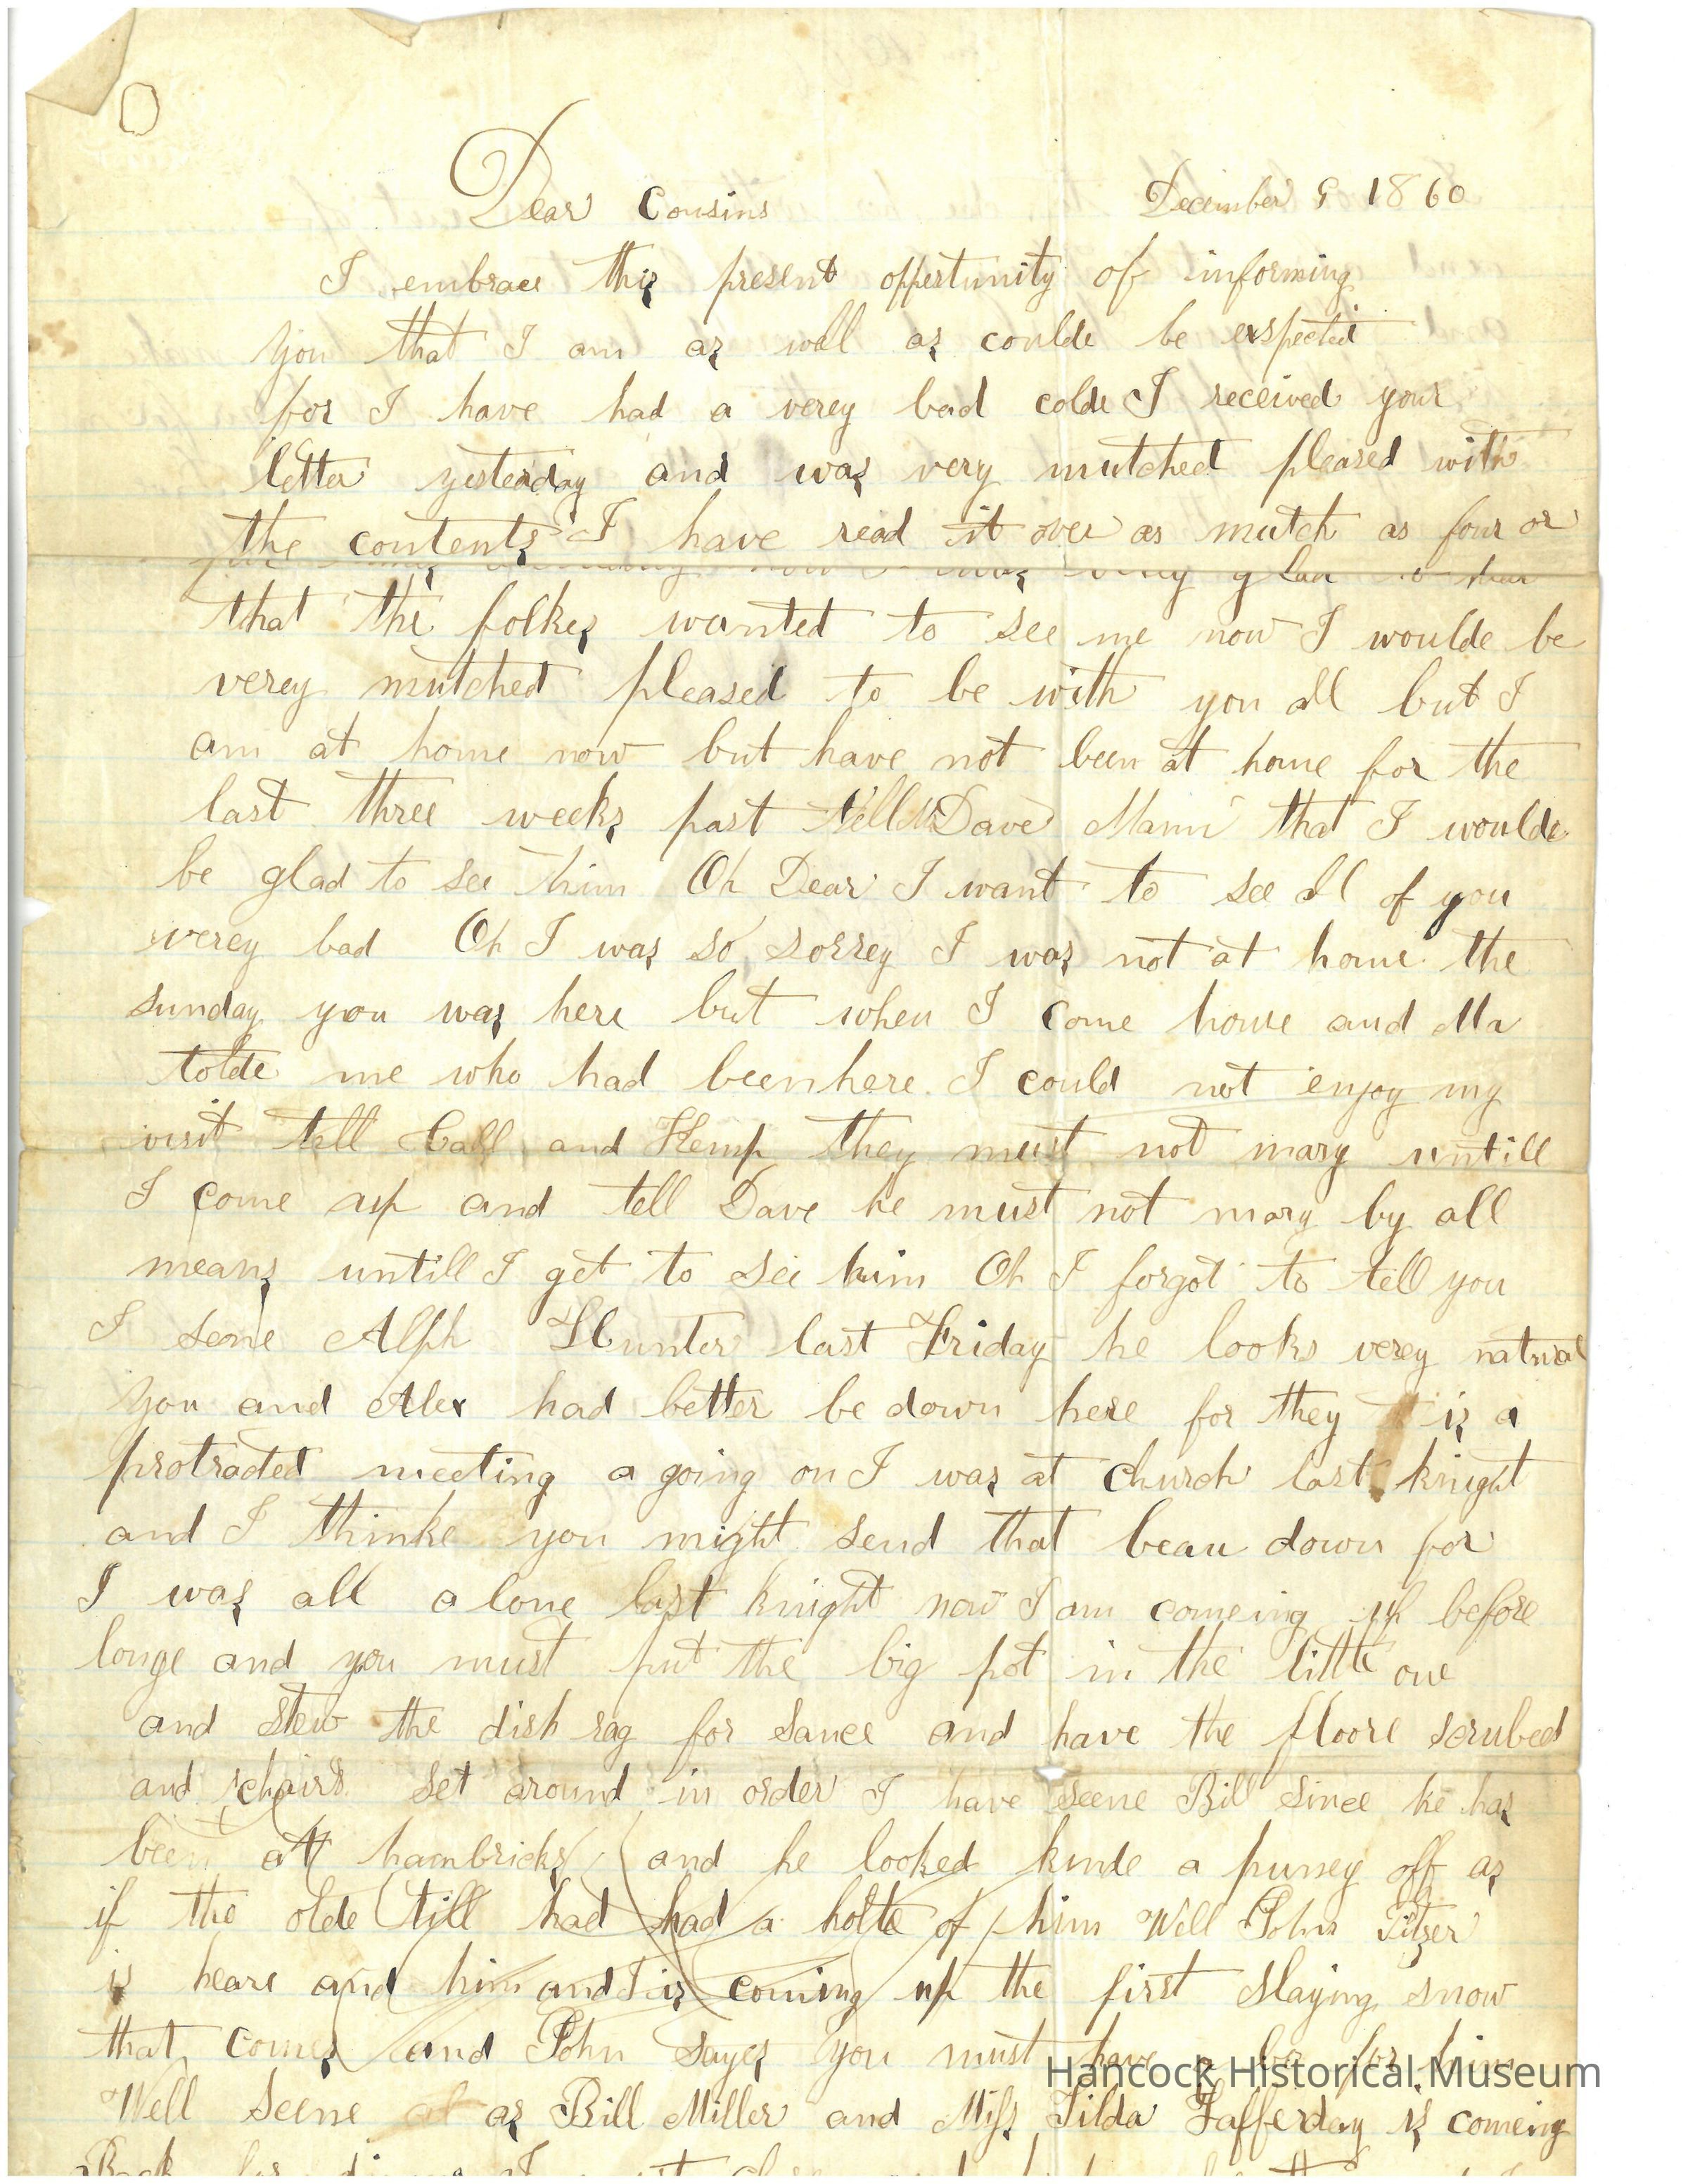 Dear Cousins December 9 1860
I embrace this present oppertunity of informing
you that I am as well as coulde be exspected
for I have had a verey bad colde I received your
letter yesterday and was very mutched pleased with
the contents I have read it over as mutch as four or
now I was very glad to hear
that the folkes wanted to see me now I woulde be
verey mutched pleased to be with you all but I
am at home now but have not been at home for the
last three weeks past Dave Mann that I woulde
be glad to see him Oh Dear I want to see all of you
verey bad Oh I was so sorrey I was not at home the
sunday you was here but when I come home and Ma
tolde me who had been here I could not enjoy my
visit tell Call and Hemp they must not mary untill
I come up and tell Dave he must not mary by all
means untill I get to see him Oh I forgot to tell you
I sene Alph Hunter last Friday he looks verey natural
you and Alex had better be down here for they is a
protracted meeting a going on I was at church last knight
and I thinke you might send that beau down for
I was all alone last knight now I am comeing up before
longe and you must put the big pot in the little one
and stew the dish rag for sauce and have the floore scrubed
and chairs set around in order I have seene Bill since he has
been at hambricks and he looked kinde a puney off as
if the olde till had had a holte of him Well John Fitzer
is heare and him and I is coming up the first slaying snow
that comes and John sayes you must have a for him
Well seene as Bill Miller and Miss Tilda Fafferday is comeing
Back
Hancock Historical Museum